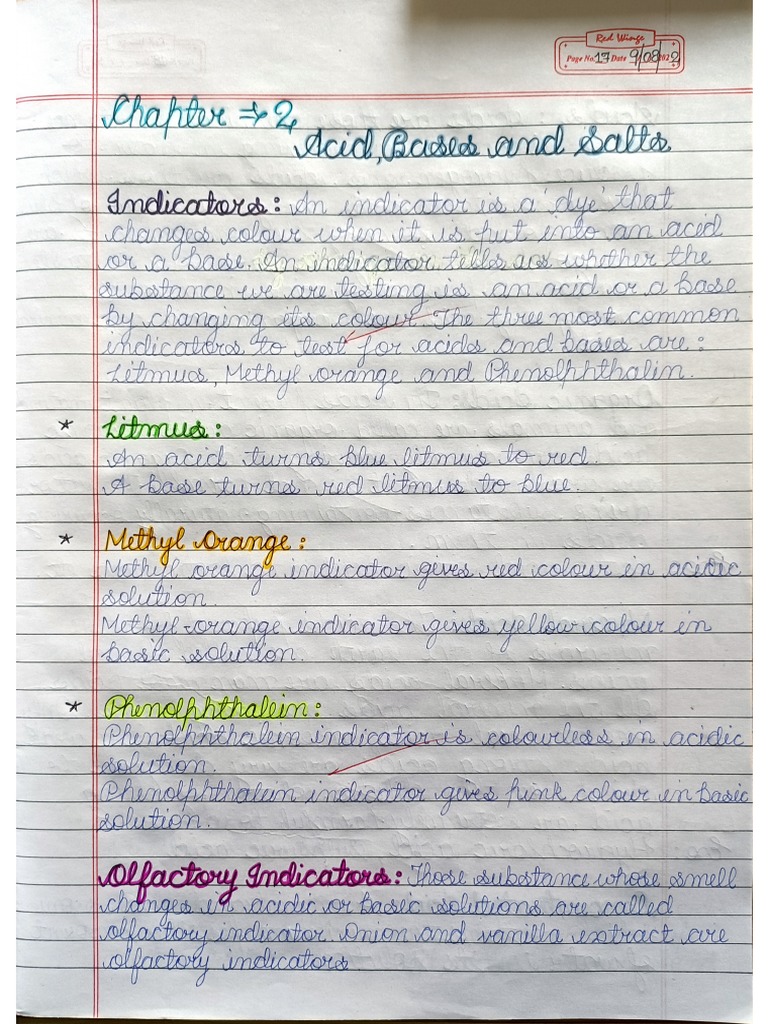 Red Wings
Page No. 17 Date 9/08/2022
Chapter ⇒ 2
Acid, Bases and Salts
Indicators: An indicator is a 'dye' that
changes colour when it is put into an acid
or a base. An indicator tells us whether the
substance we are testing is an acid or a base
by changing its colour. The three most common
indicators to test for acids and bases are:
Litmus, Methyl orange and Phenolphthalin.
* Litmus:
An acid turns blue litmus to red.
A base turns red litmus to blue.
* Methyl Orange:
Methyl orange indicator gives red colour in acidic
solution.
Methyl-orange indicator gives yellow colour in
basic solution.
* Phenolphthalein:
Phenolphthalein indicator is colourless in acidic
solution.
Phenolphthalein indicator gives pink colour in basic
solution.
Olfactory Indicators: Those substance whose smell
changes in acidic or basic solutions are called
olfactory indicator. Onion and vanilla extract are
olfactory indicators.